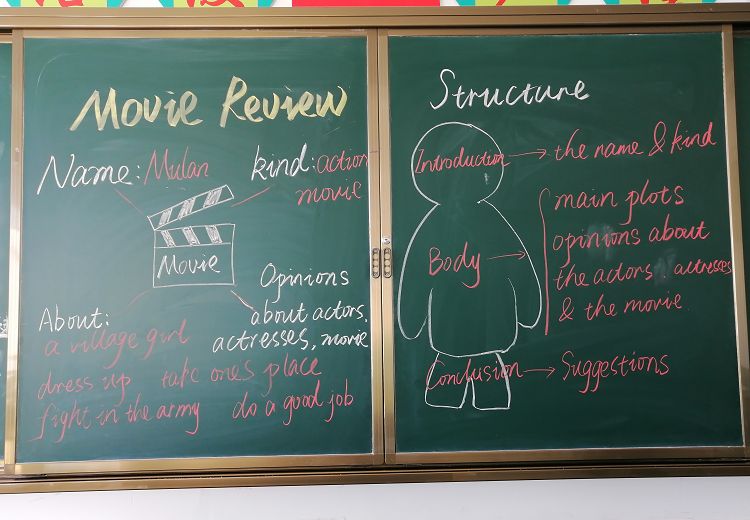 Movie Review
Name: Mulan
kind: action
movie
Movie
About:
a village girl
dress up take one's place
fight in the army do a good job
Opinions
about actors,
actresses, movie
Structure
Introduction → the name & kind
Body →
main plots
opinions about
the actors, actresses
& the movie
Conclusion → Suggestions